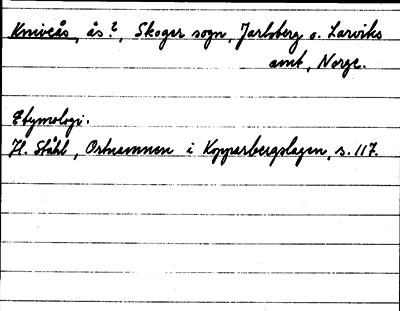 Kniveås, ås?, Skoger sogn, Jarlsberg o. Larviks
amt, Norge.
Etymologi.
H. Ståhl, Ortnamnen i Kopparbergslagen, s. 117.